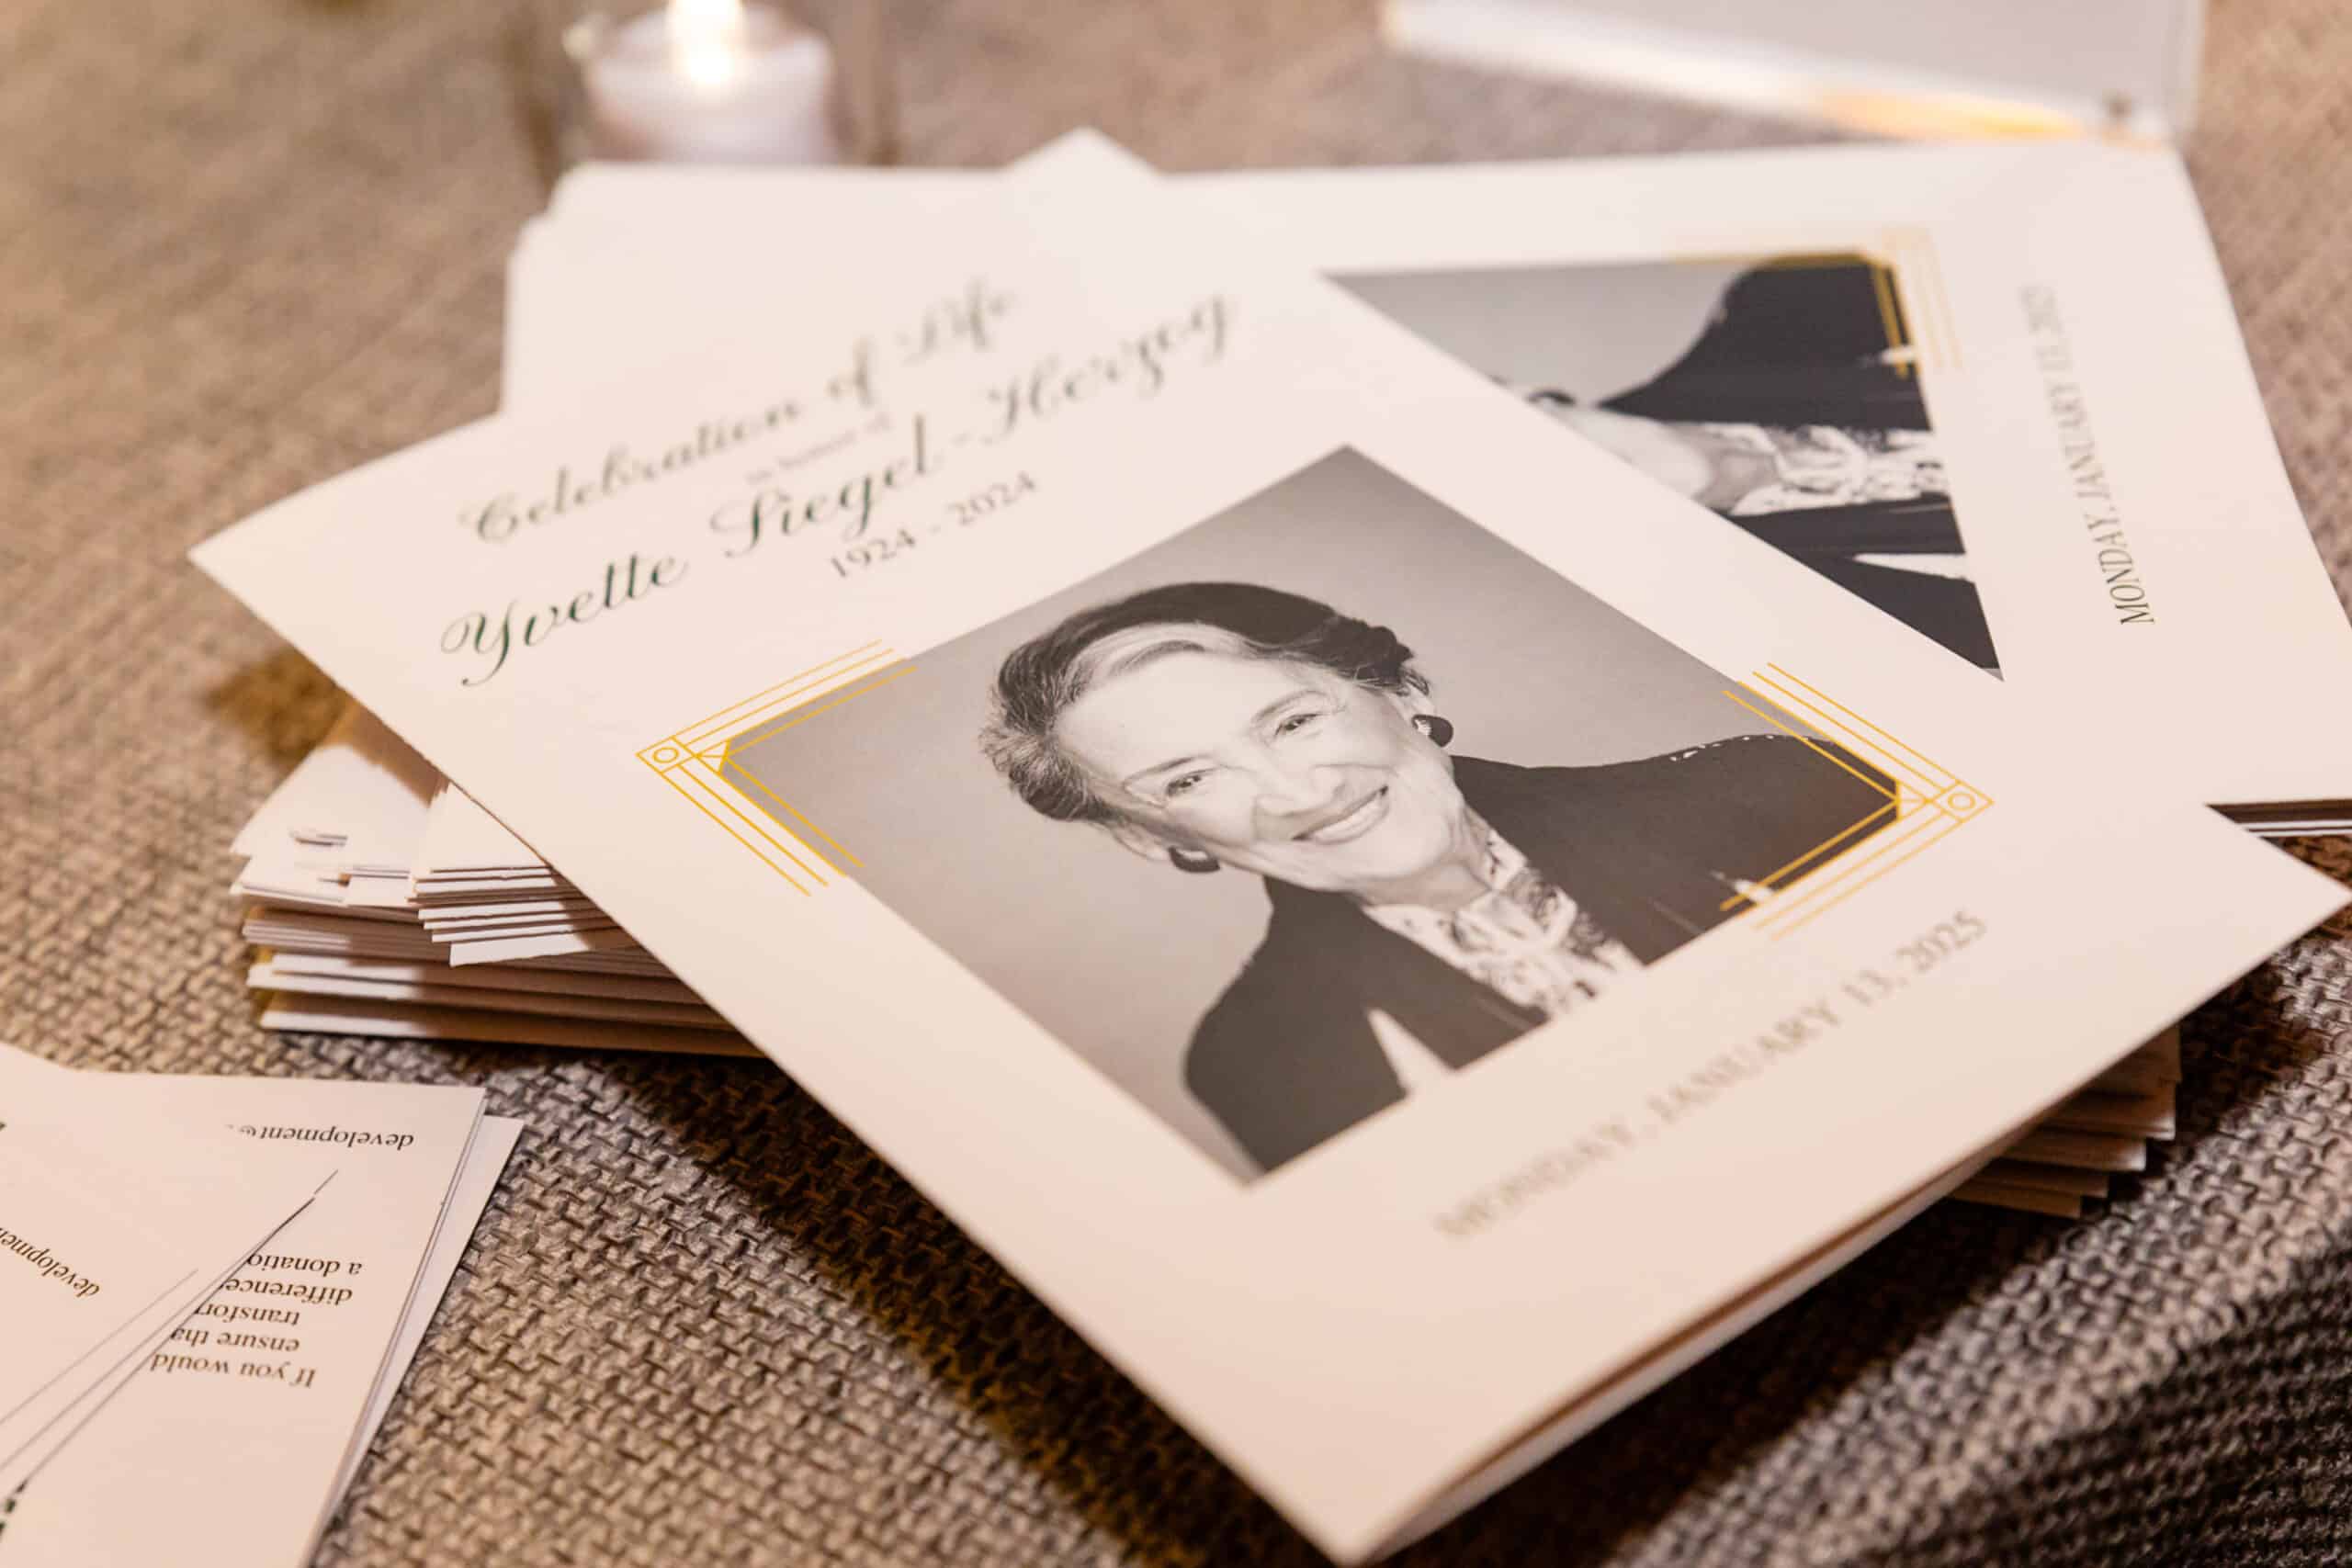 Celebration of Life
in honor of
Yvette Siegel-Herzog
1924 - 2024
MONDAY, JANUARY 13, 2025
MONDAY, JANUARY 13, 2025
development@
a donatio
difference
transfor
ensure tha
If you would
developmen